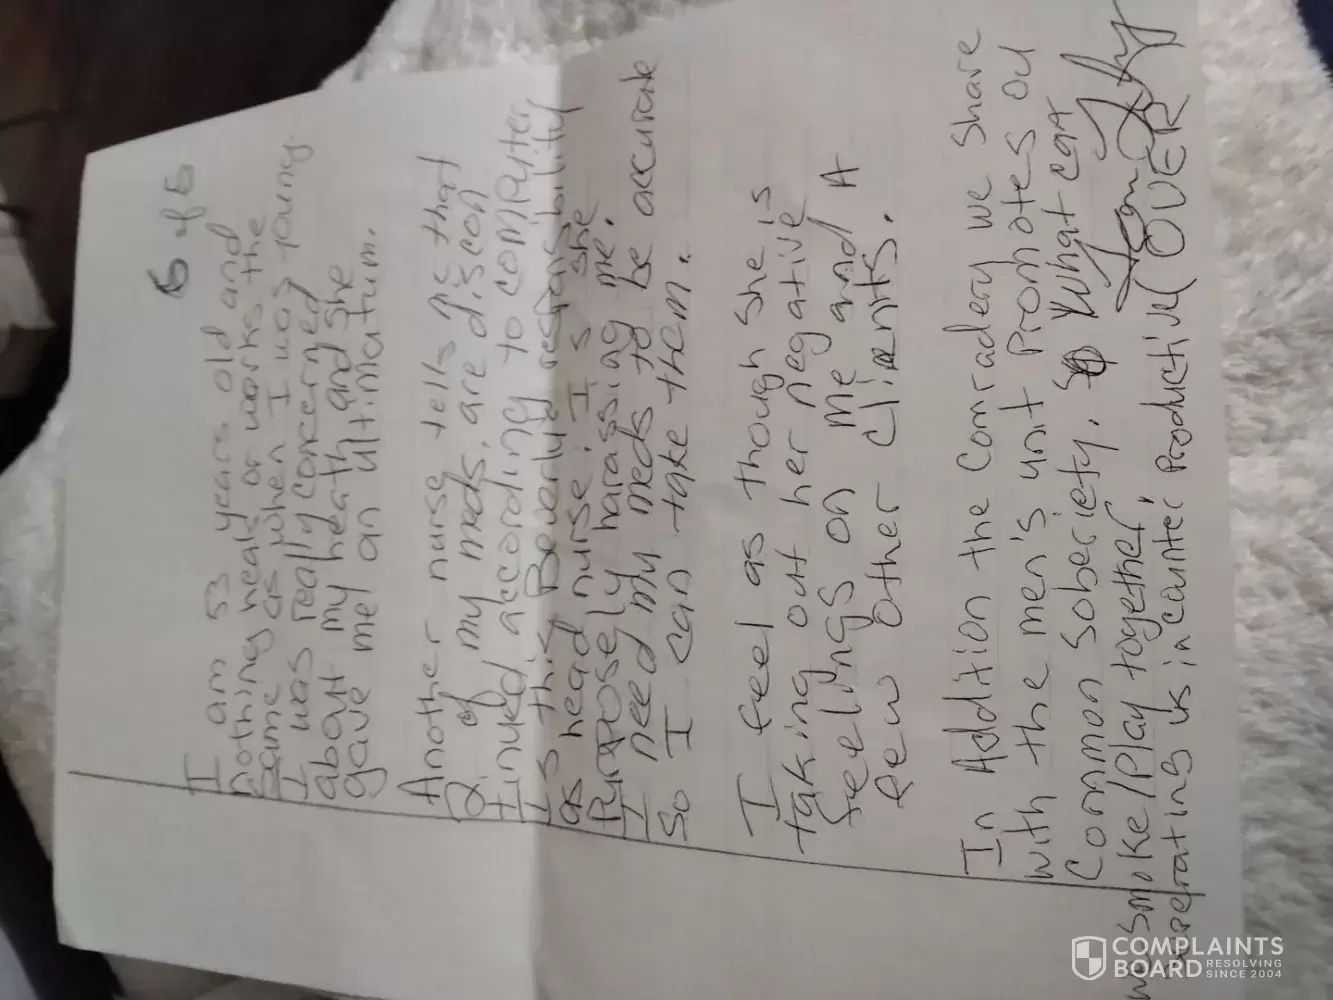 6 of 6
I am 53 years old and
nothing heals or works the
same as when I was young.
I was really concerned
about my health and she
gave me an ultimatum.
Another nurse tells me that
2 of my meds. are discon
tinued according to computer
Is this Beverly's responsbility
as head nurse. Is she
Purposely harassing me.
I need my meds to be accurate
so I can take them.
I feel as though she is
taking out her negative
feelings on me and A
few other clients.
In Addition the Comradery we share
with the men's unit Promotes our
Common soberiety. What can
we smoke/Play together,
seperating us is counter Productive (OVER
COMPLAINTS
BOARD RESOLVING
SINCE 2004